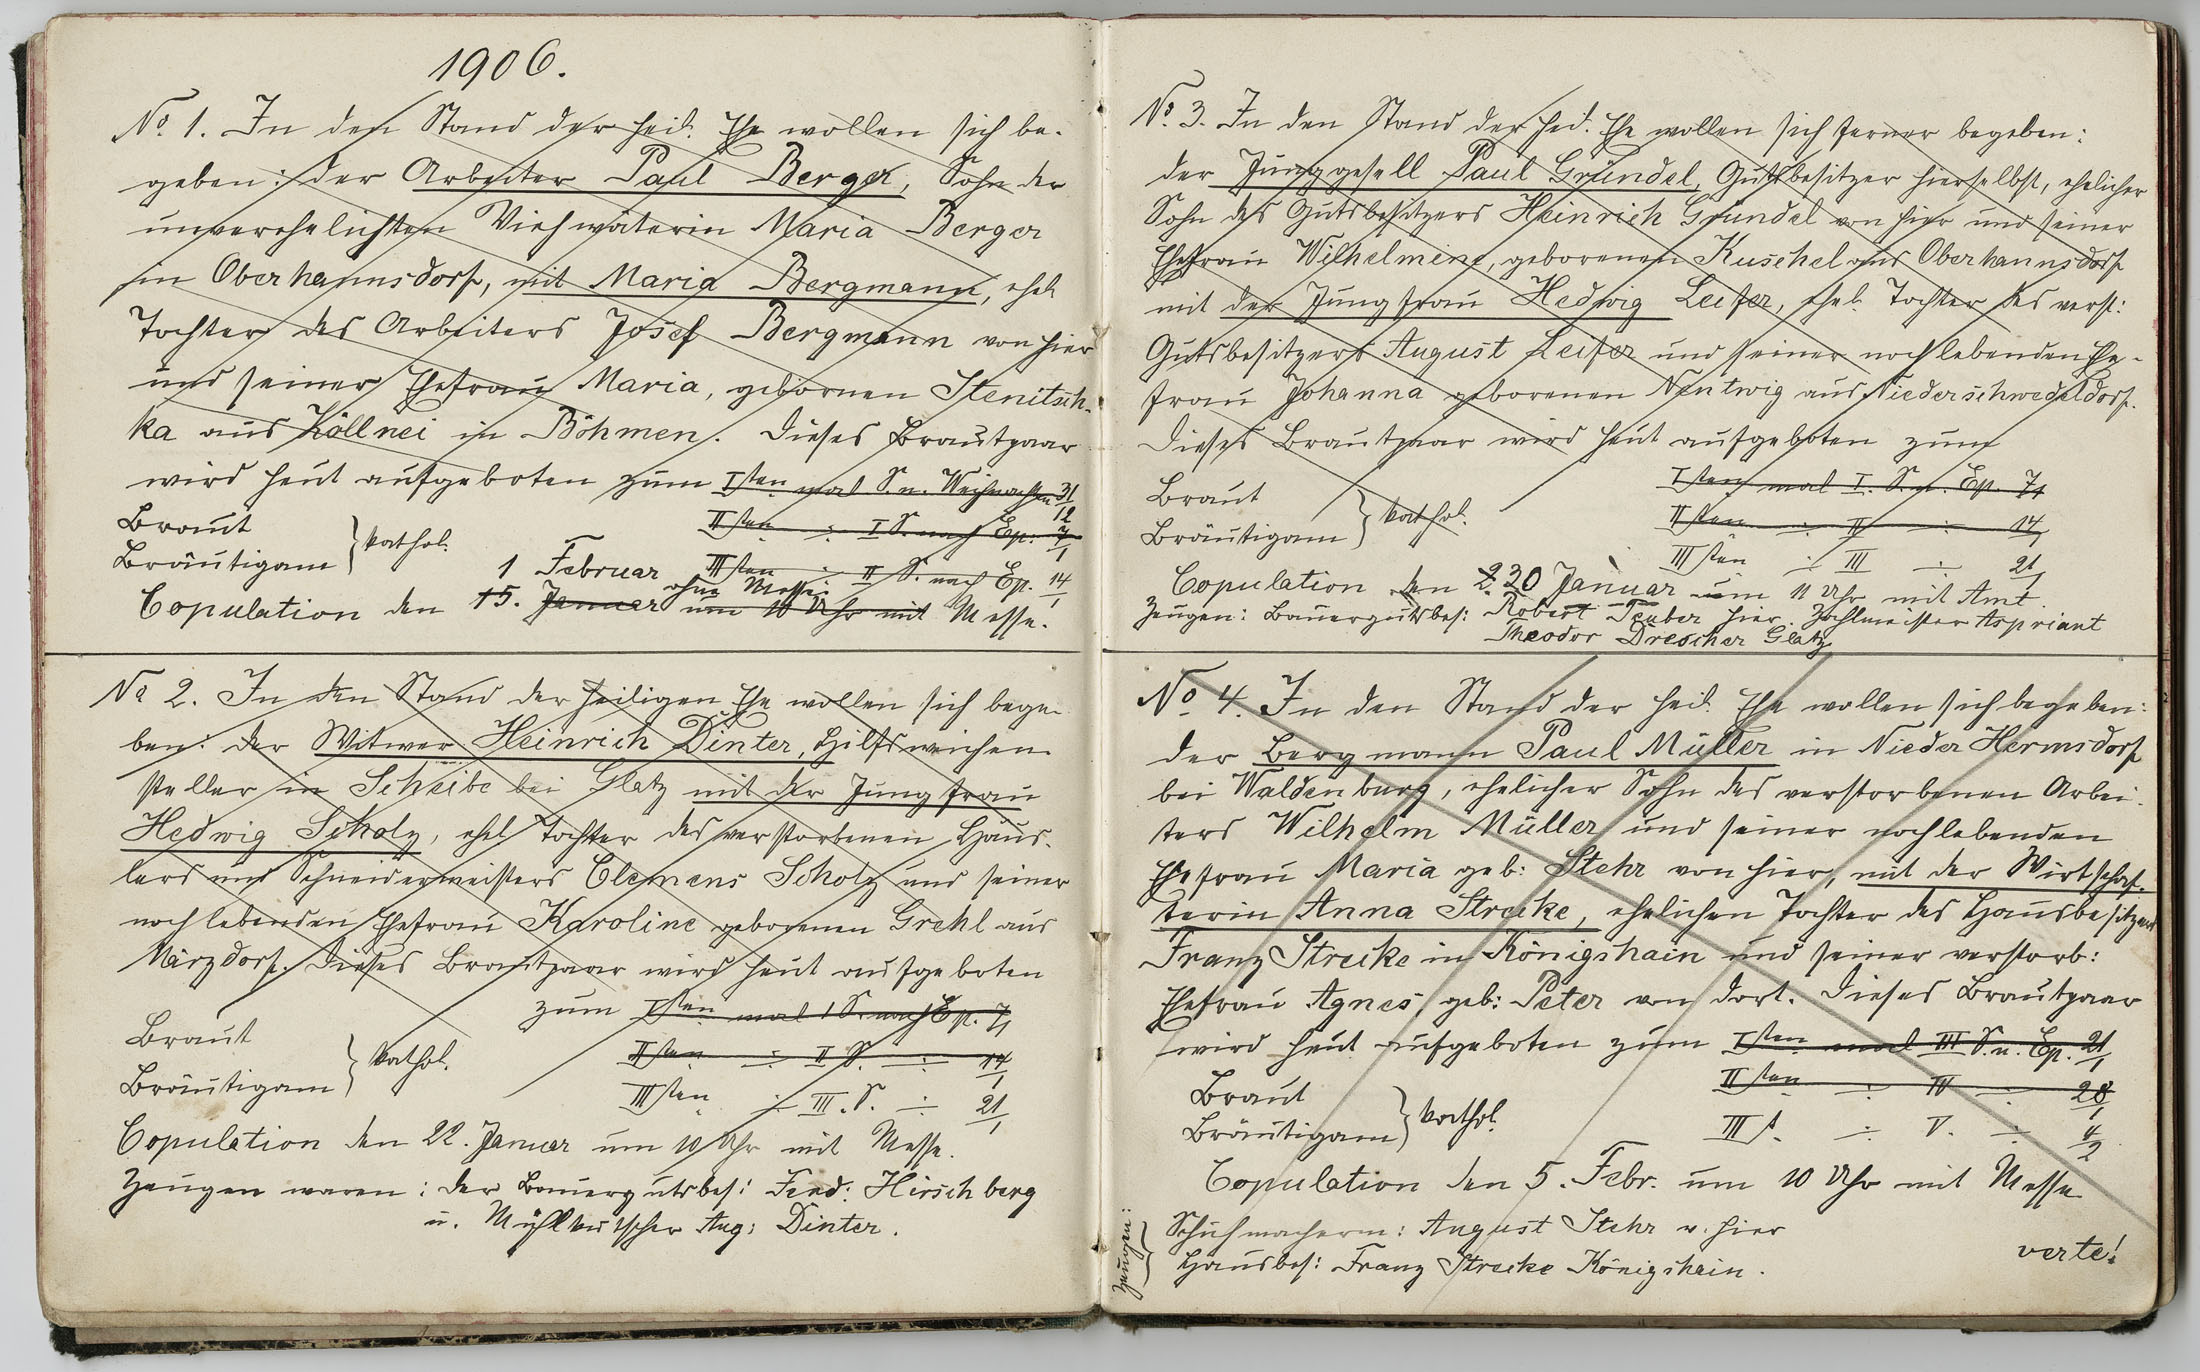 1906.
No 1. In den Stand der heil. Ehe wollen sich be-
geben: der Arbeiter Paul Berger, Sohn der
unverehelichten Viehwärterin Maria Berger
in Oberhannsdorf, mit Maria Bergmann, ehel.
Tochter des Arbeiters Josef Bergmann von hier
und seiner Ehefrau Maria, gebornen Stenitsch-
ka aus Köllnei in Böhmen. Dieses Brautpaar
wird heut aufgeboten zum Isten mal S. n. Weihnachten 31/12
Braut
Bräutigam } kathol.
IIsten ÷ I S. nach Ep. 7/1
IIIsten ÷ II S. nach Ep. 14/1
1 Februar ohne Messe:
Copulation den 15. Januar um 10 Uhr mit Messe.
No 2. In den Stand der heiligen Ehe wollen sich bege-
ben: der Witwer Heinrich Dinter, Hilfsweichen-
steller in Scheibe bei Glatz mit der Jungfrau
Hedwig Scholz, ehel. Tochter des verstorbenen Häus-
lers und Schneidermeisters Clemens Scholz und seiner
noch lebenden Ehefrau Karoline geborenen Grehl aus
Märzdorf. Dieses Brautpaar wird heut aufgeboten
zum Isten mal I S. nach Ep. 7/1
Braut
Bräutigam } kathol.
IIsten ÷ II S. ÷ 14/1
IIIsten ÷ III. S. ÷ 21/1
Copulation den 22. Januar um 10 Uhr mit Messe.
Zeugen waren: der Bauergutsbes: Ferd: Hirschberg
u. Mühlkutscher Aug: Dinter.
No. 3. In den Stand der heil. Ehe wollen sich ferner begeben:
der Junggesell Paul Gründel, Gutsbesitzer hierselbst, ehelicher
Sohn des Gutsbesitzers Heinrich Gründel von hier und seiner
Ehefrau Wilhelmine, geborenen Kuschel aus Oberhannsdorf
mit der Jungfrau Hedwig Leifer, ehel. Tochter des verst:
Gutsbesitzers August Leifer und seiner noch lebenden Ehe-
frau Johanna geborenen Nentwig aus Niederschwedeldorf.
Dieses Brautpaar wird heut aufgeboten zum
Isten mal I. S. n. Ep. 7/1
Braut
Bräutigam } kathol.
IIsten ÷ II ÷ 14/1
IIIsten ÷ III ÷ 21/1
Copulation den 2 30 Januar um 11 Uhr mit Amt.
Zeugen: Bauergutsbes: Robert Teuber hier. Zahlmeister Aspriant
Theodor Drescher Glatz
No. 4. In den Stand der heil. Ehe wollen sich begeben:
der Bergmann Paul Müller in Nieder Hermsdorf
bei Waldenburg, ehelicher Sohn des verstorbenen Arbei-
ters Wilhelm Müller und seiner noch lebenden
Ehefrau Maria geb: Stehr von hier, mit der Wirtschaf-
terin Anna Strecke, ehelichen Tochter des Hausbesitzers
Franz Strecke in Königshain und seiner verstorb:
Ehefrau Agnes, geb: Peter von dort. Dieses Brautpaar
wird heut aufgeboten zum Isten mal III S. n. Ep. 21/1
Braut
Bräutigam } kathol.
IIsten ÷ IV ÷ 28/1
III s. ÷ V. ÷ 4/2
Copulation den 5. Febr. um 10 Uhr mit Messe
Zeugen:
Schuhmacherm: August Stehr v. hier
Hausbes: Franz Strecke Königshain.
verte!